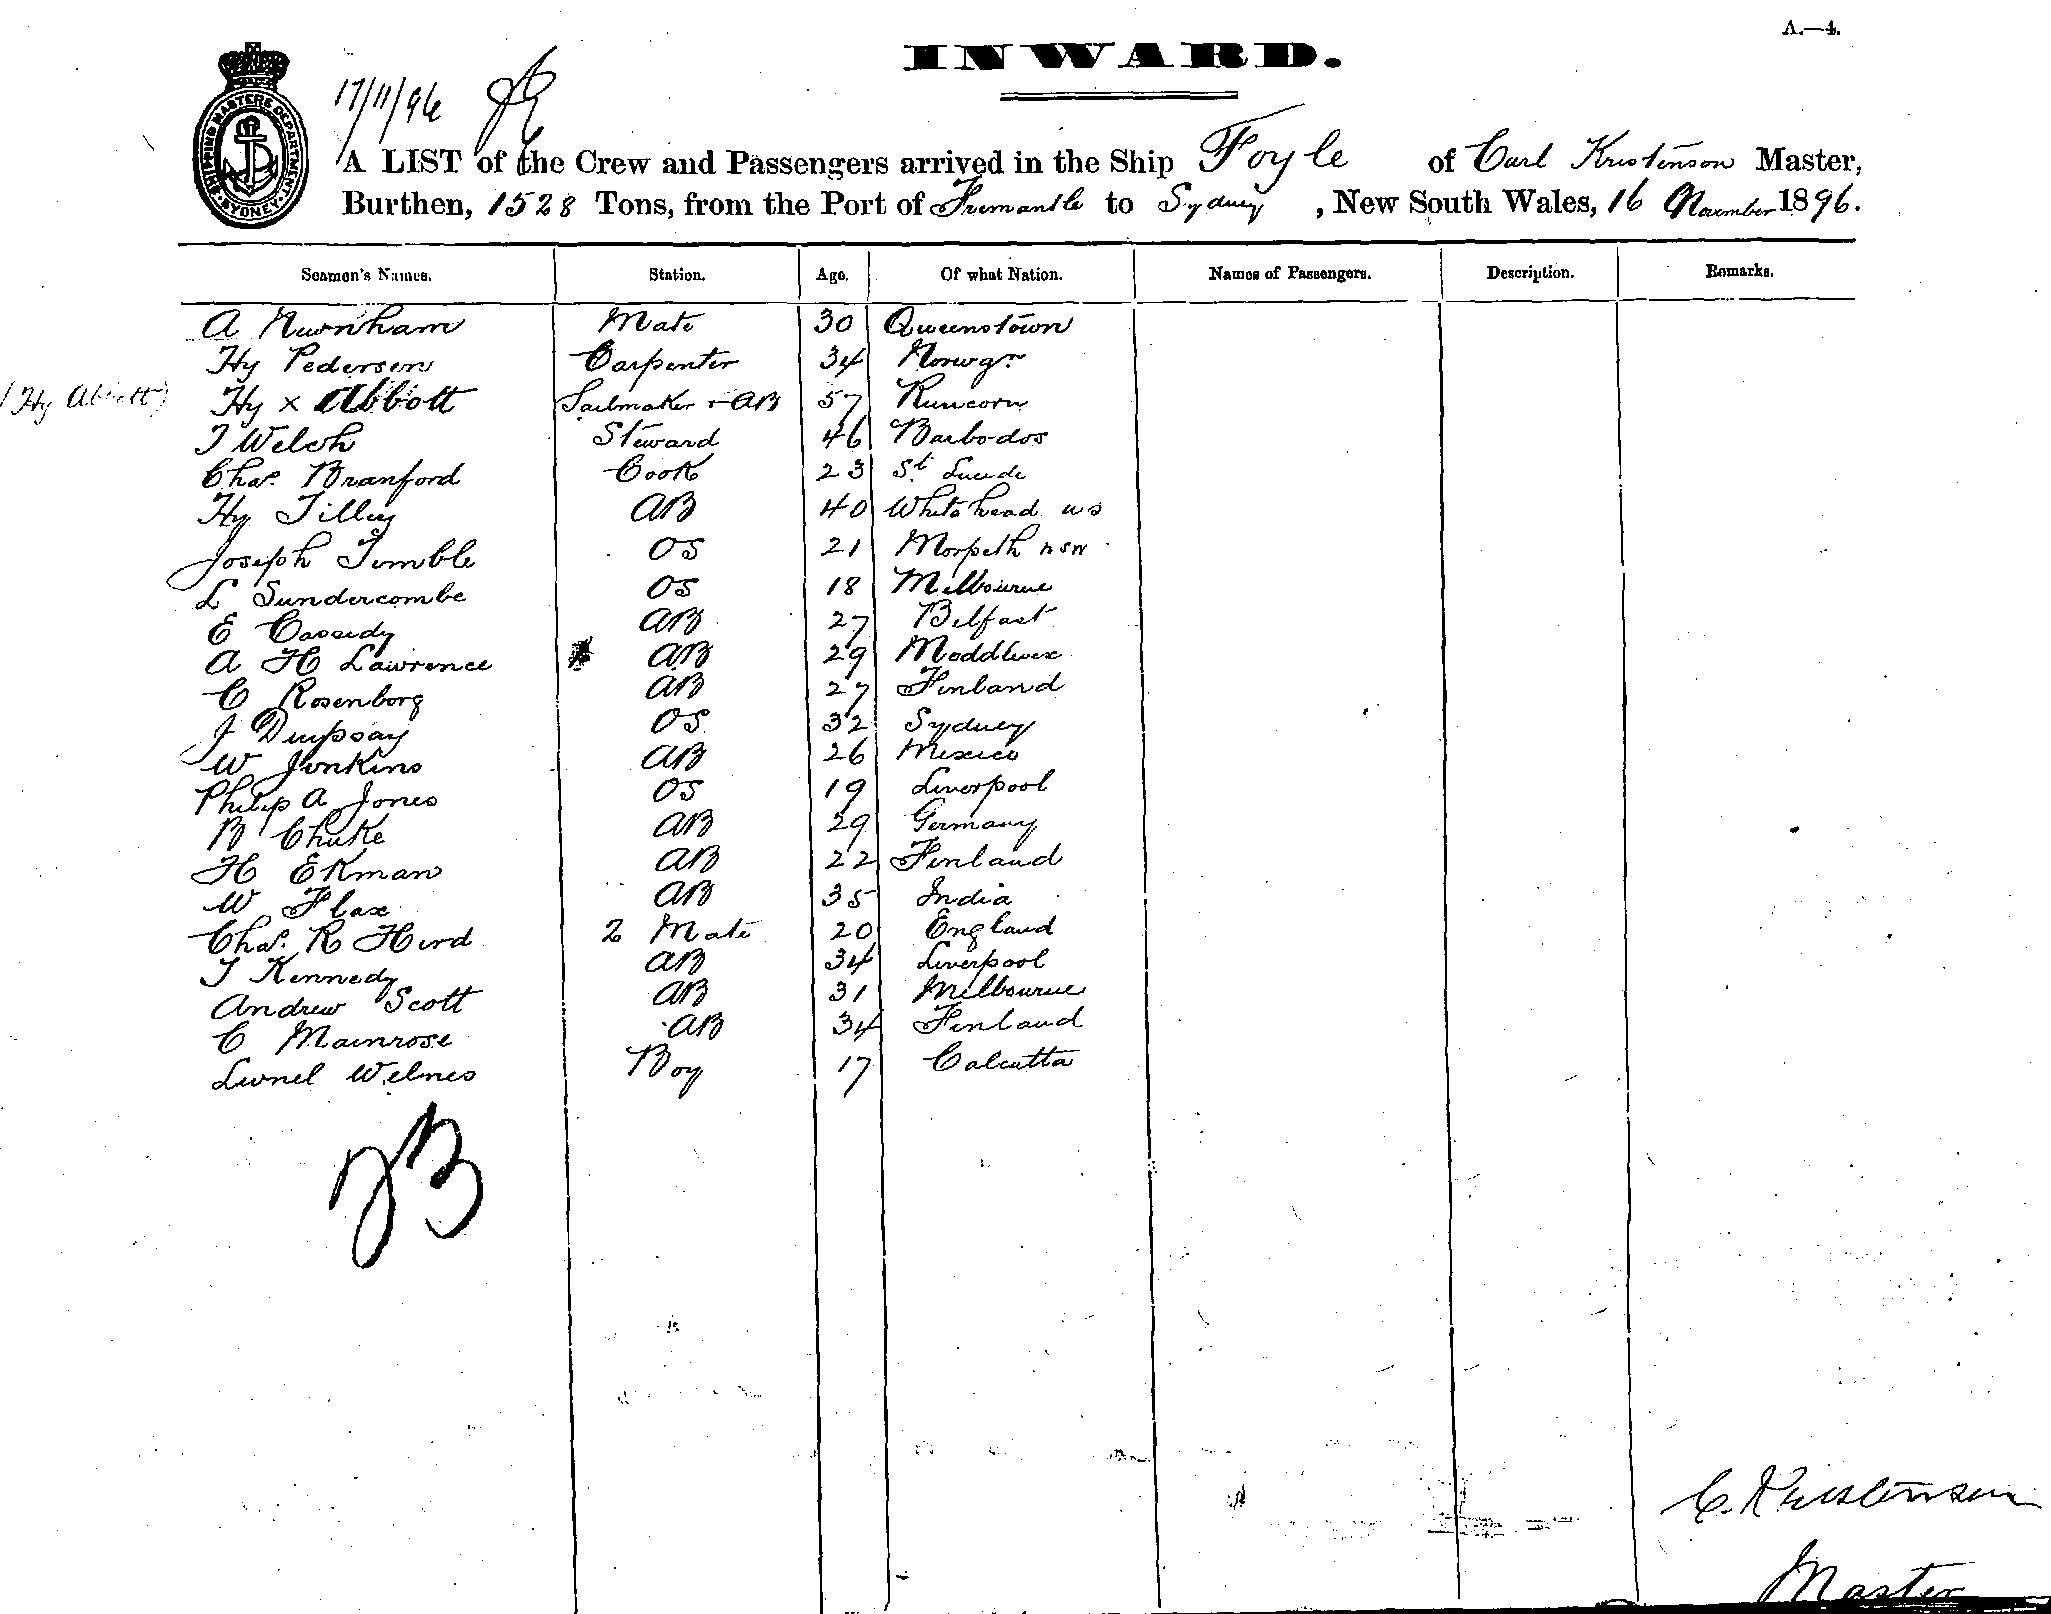 A.—4.
INWARD.
SHIPPING MASTERS DEPARTMENT SYDNEY
17/11/96
A LIST of the Crew and Passengers arrived in the Ship Foyle of Carl Kristenson Master,
Burthen, 1528 Tons, from the Port of Fremantle to Sydney, New South Wales, 16 November 1896.
Seamen's Names. Station. Age. Of what Nation. Names of Passengers. Description. Remarks.
A Nurnham Mate 30 Queenstown
Hy Pedersen Carpenter 34 Norwgn
(Hy Abbott) Hy x Abbott Sailmaker + AB 57 Runcorn
J Welch Steward 46 Barbados
Chas. Branford Cook 23 St
Hy Tilley AB 40 Whitehead
Joseph Tumble OS 21 Morpeth nsw
L Sundercombe OS 18 Melbourne
E Cassidy AB 27 Belfast
A H Lawrence AB 29 Middlesex
C Rosenborg AB 27 Finland
J Dempsay OS 32 Sydney
W Jenkins AB 26 Mexico
Philip A Jones OS 19 Liverpool
B Chuke AB 29 Germany
H Ekman AB 22 Finland
W Flax AB 35 India
Chas. R Hird 2 Mate 20 England
J Kennedy AB 34 Liverpool
Andrew Scott AB 31 Melbourne
C Mainrose AB 34 Finland
Lionel Welmes Boy 17 Calcutta
C. Kristenson
Master